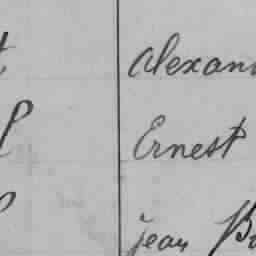 Alexan
Ernest
jean B